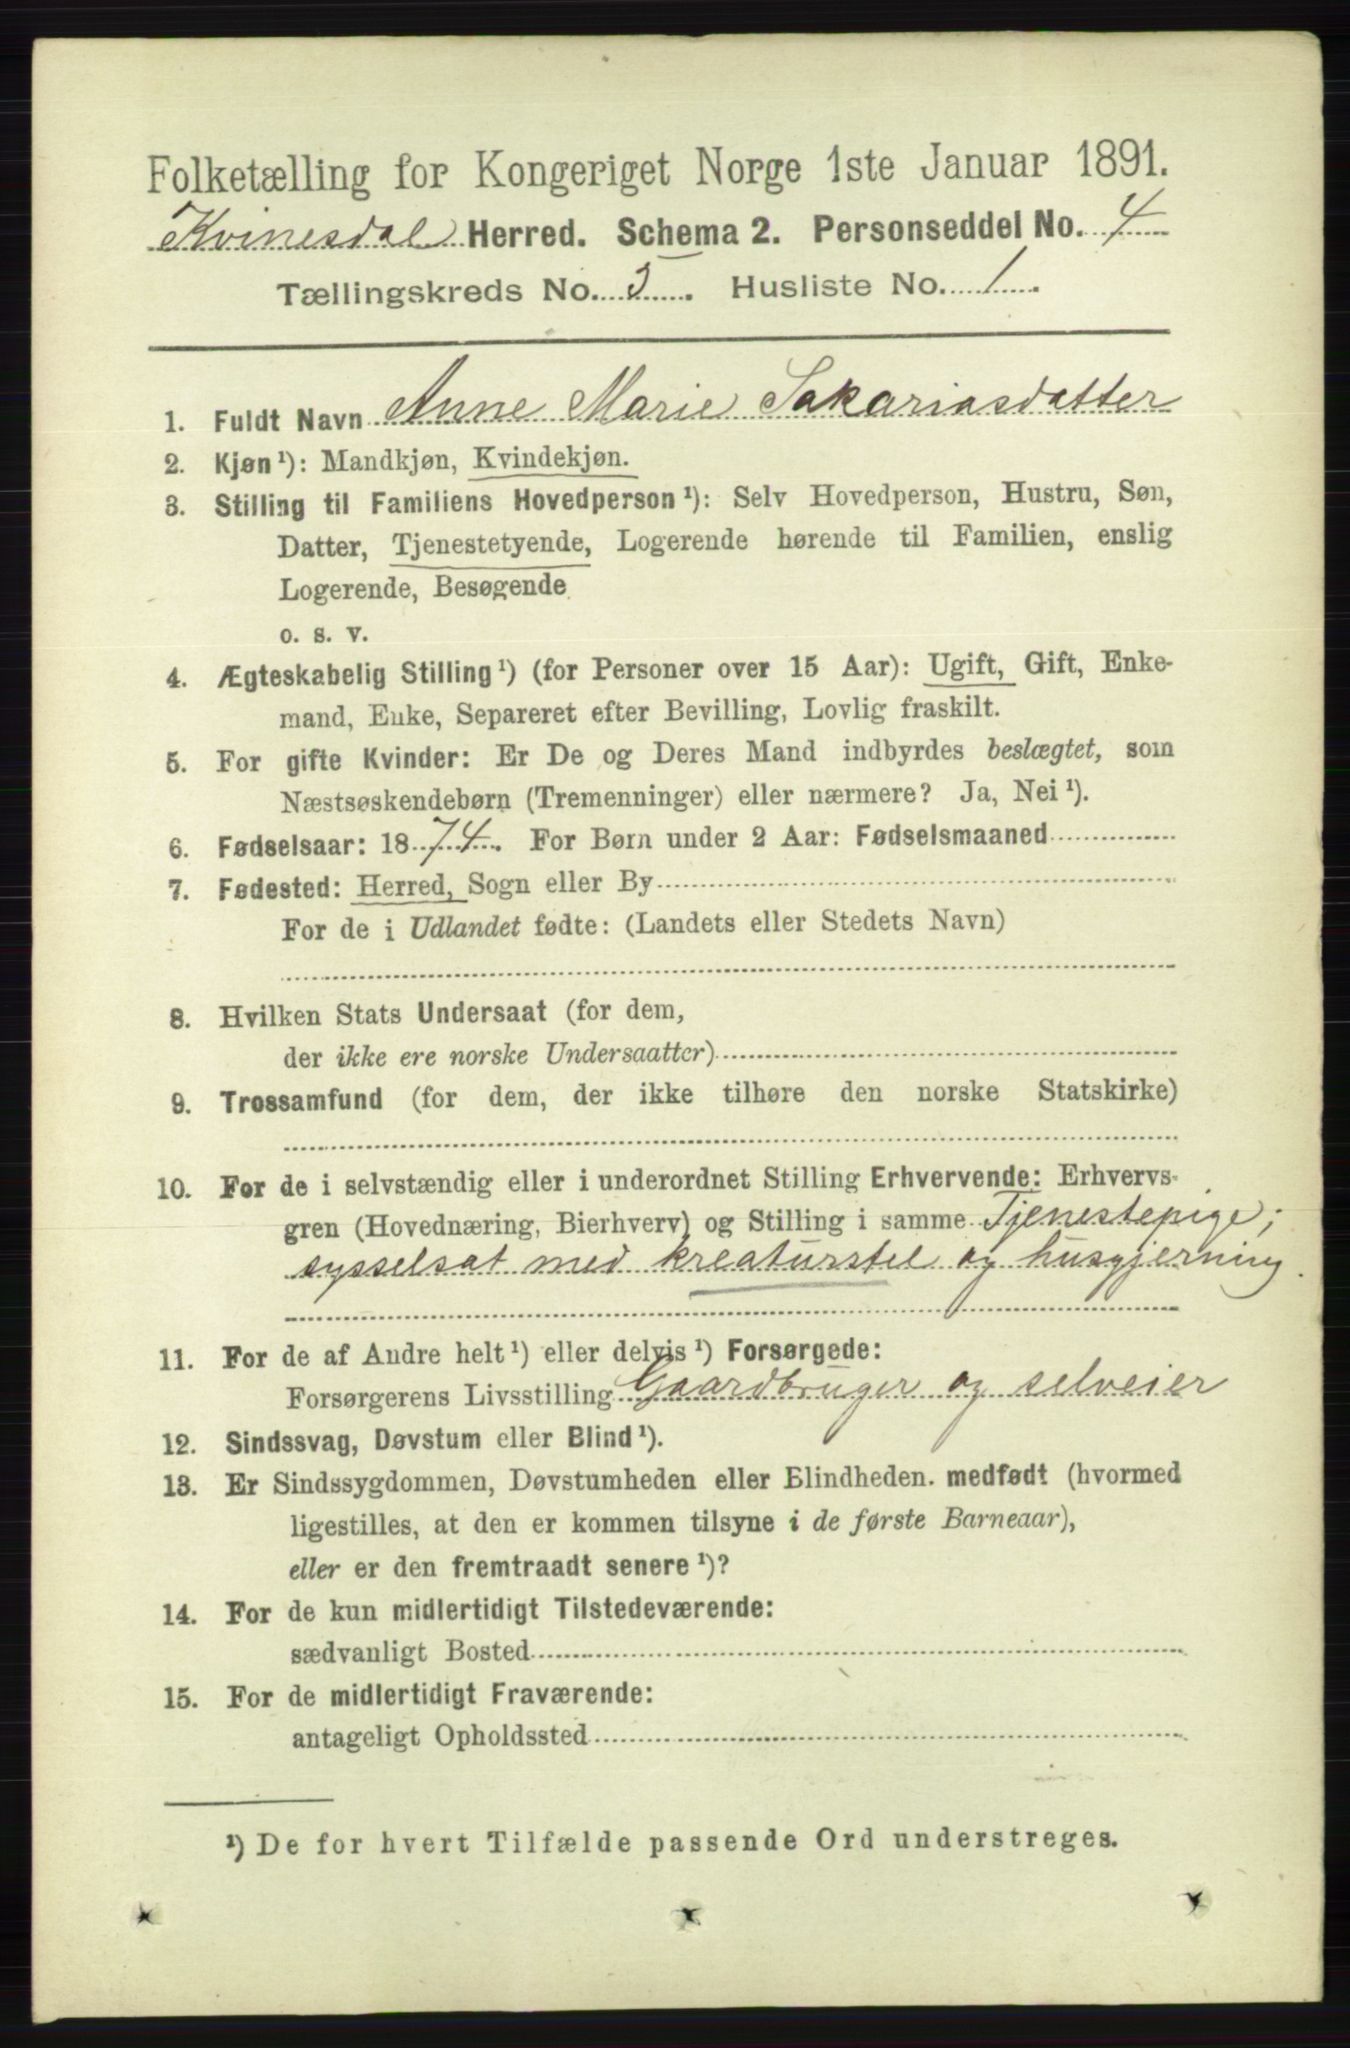 Folketælling for Kongeriget Norge 1ste Januar 1891.
Kvinesdal Herred. Schema 2. Personseddel No. 4
Tællingskreds No. 5. Husliste No. 1.
1. Fuldt Navn Anne Marie Sakariasdatter
2. Kjøn¹): Mandkjøn, Kvindekjøn.
3. Stilling til Familiens Hovedperson¹): Selv Hovedperson, Hustru, Søn,
Datter, Tjenestetyende, Logerende hørende til Familien, enslig
Logerende, Besøgende
o. s. v.
4. Ægteskabelig Stilling¹) (for Personer over 15 Aar): Ugift, Gift, Enke-
mand, Enke, Separeret efter Bevilling, Lovlig fraskilt.
5. For gifte Kvinder: Er De og Deres Mand indbyrdes beslægtet, som
Næstsøskendebørn (Tremenninger) eller nærmere? Ja, Nei¹).
6. Fødselsaar: 1874. For Børn under 2 Aar: Fødselsmaaned
7. Fødested: Herred, Sogn eller By
For de i Udlandet fødte: (Landets eller Stedets Navn)
8. Hvilken Stats Undersaat (for dem,
der ikke ere norske Undersaatter)
9. Trossamfund (for dem, der ikke tilhøre den norske Statskirke)
10. For de i selvstændig eller i underordnet Stilling Erhvervende: Erhvervs-
gren (Hovednæring, Bierhverv) og Stilling i samme Tjenestepige;
sysselsat med kreaturstel og husgjerning.
11. For de af Andre helt¹) eller delvis¹) Forsørgede:
Forsørgerens Livsstilling Gaardbruger og selveier
12. Sindssvag, Døvstum eller Blind¹).
13. Er Sindssygdommen, Døvstumheden eller Blindheden. medfødt (hvormed
ligestilles, at den er kommen tilsyne i de første Barneaar),
eller er den fremtraadt senere¹)?
14. For de kun midlertidigt Tilstedeværende:
sædvanligt Bosted
15. For de midlertidigt Fraværende:
antageligt Opholdssted
¹) De for hvert Tilfælde passende Ord understreges.